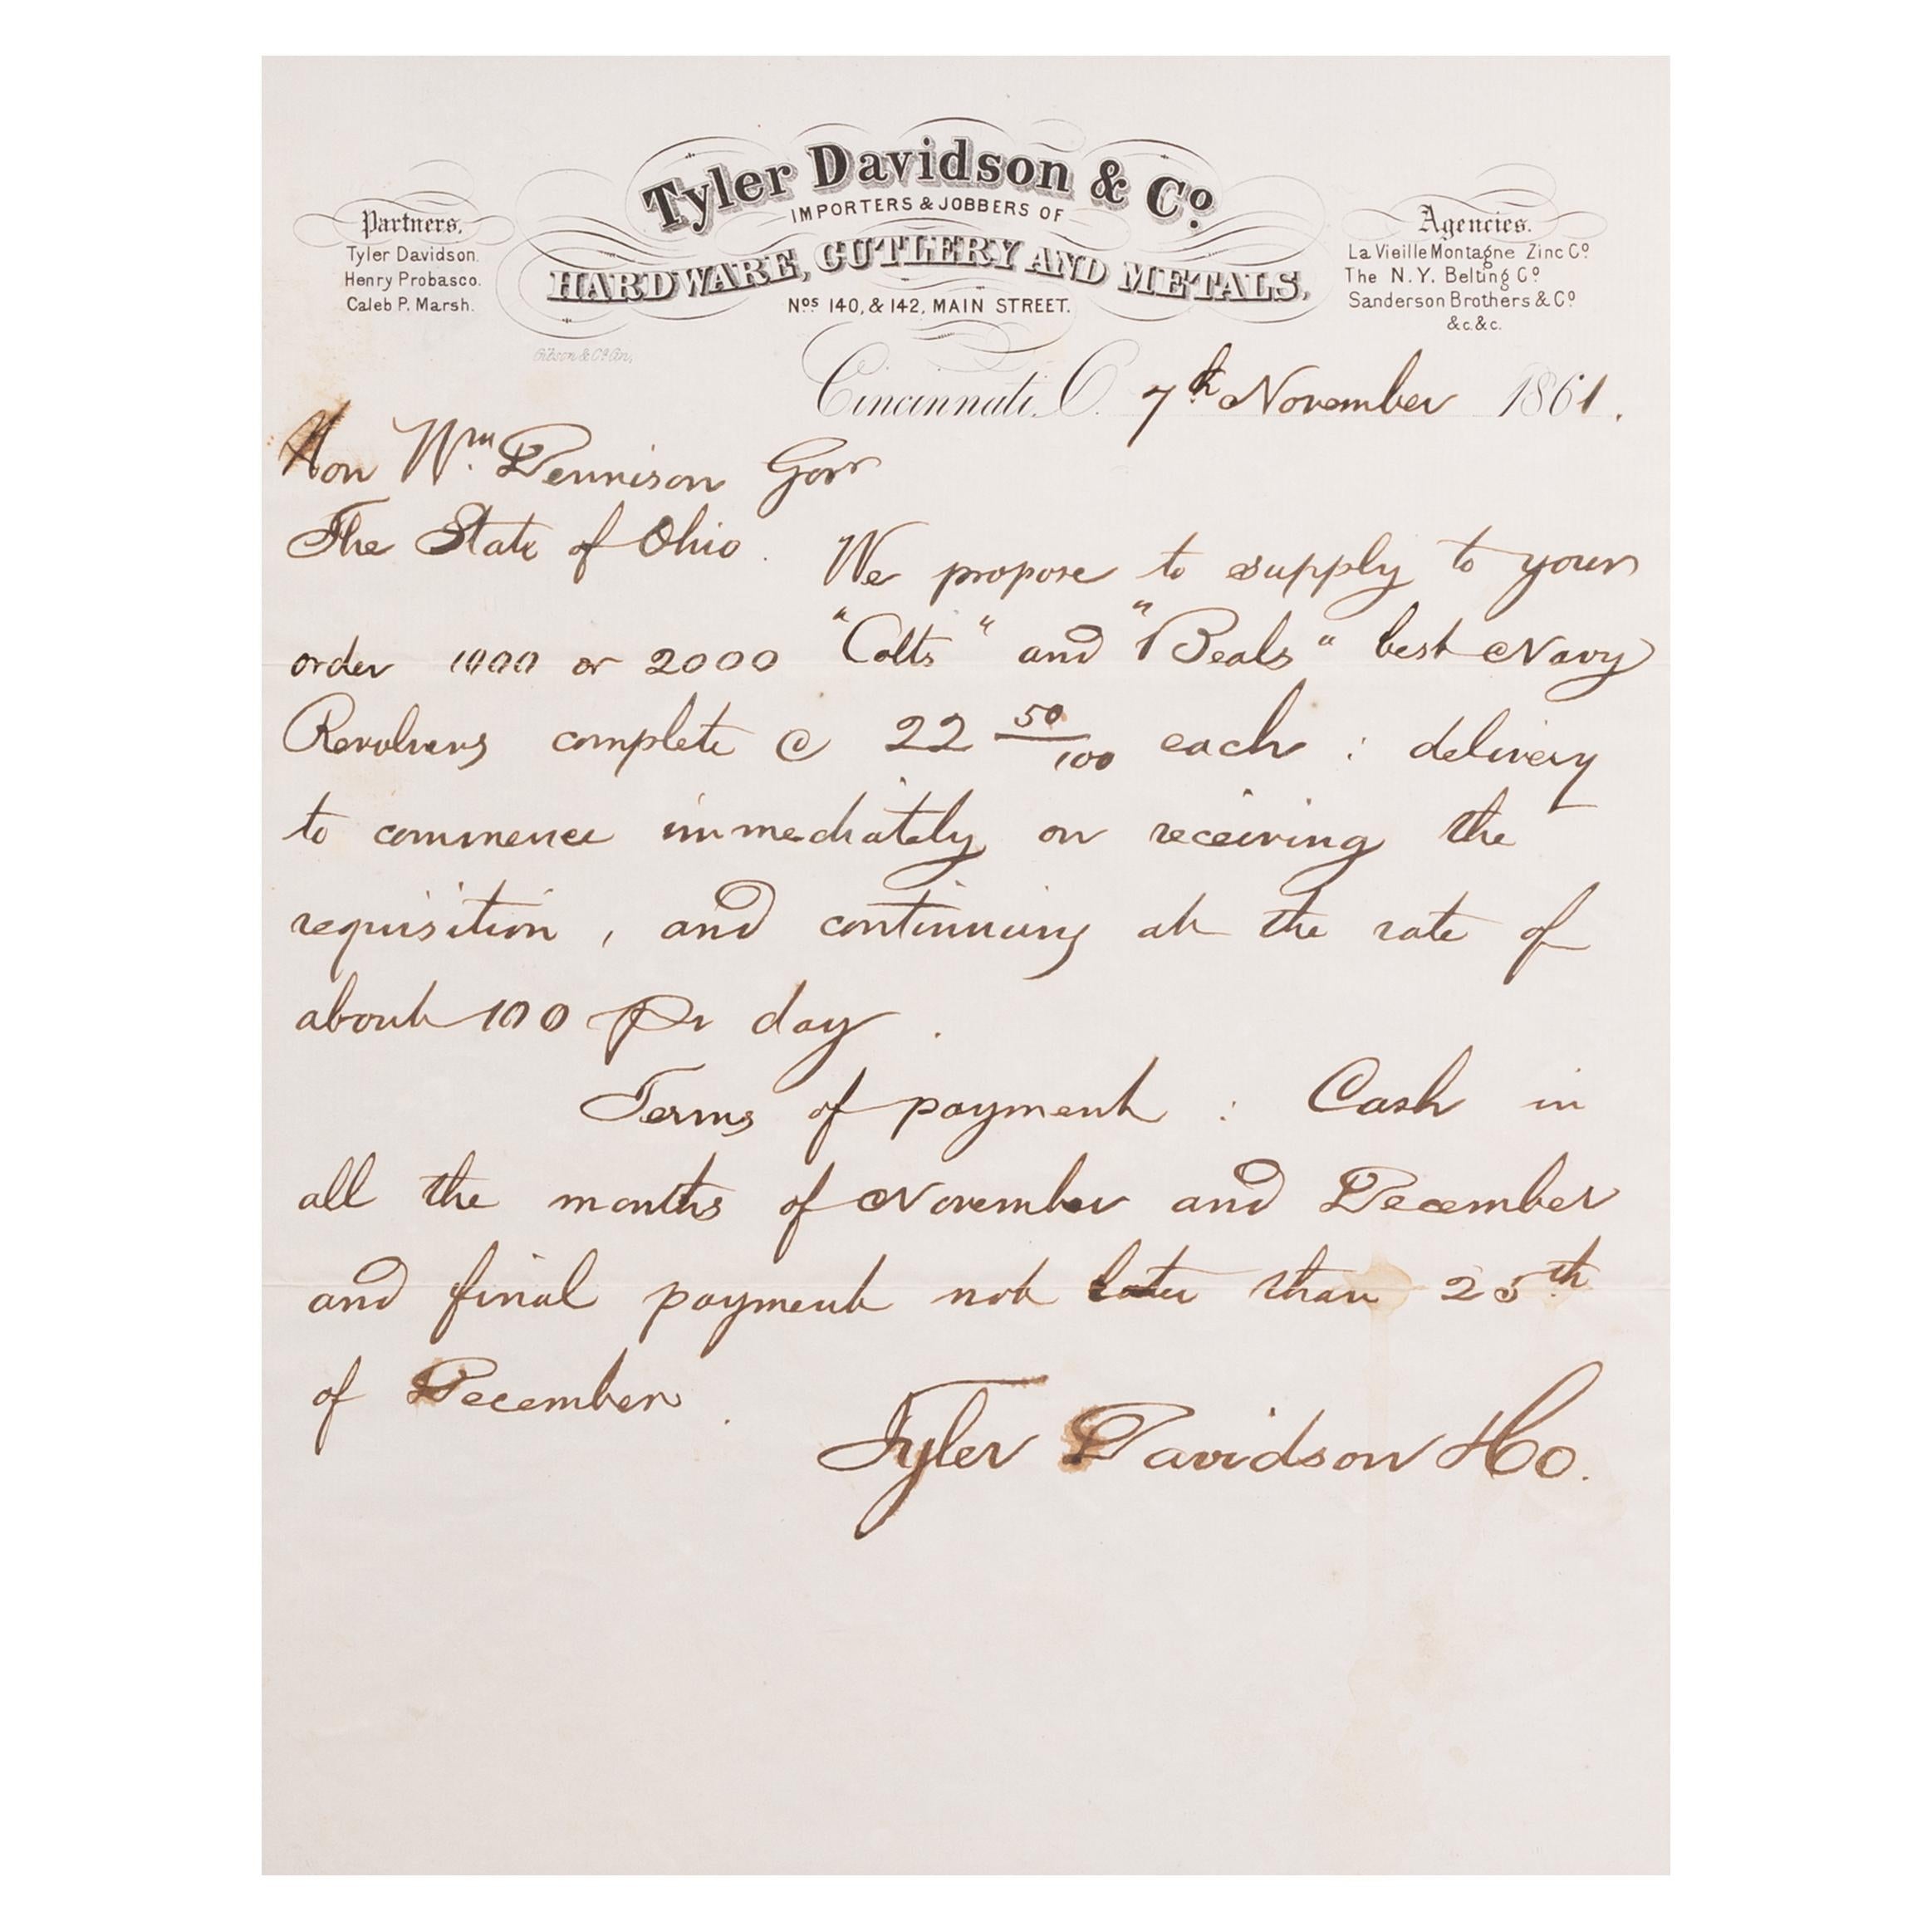 Tyler Davidson & Co.
IMPORTERS & JOBBERS OF
HARDWARE, CUTLERY AND METALS,
Nos 140, & 142, MAIN STREET.
Partners.
Tyler Davidson.
Henry Probasco.
Caleb P. Marsh.
Agencies.
La Vieille Montagne Zinc Co.
The N.Y. Belting Co.
Sanderson Brothers & Co.
&c. &c.
Gibson & Co. Cin,
Cincinnati, O. 7th November 1861.
Hon Wm. Dennison Govr
The State of Ohio.
We propose to supply to your
order 1000 or 2000 "Colts" and "Beals" best Navy
Revolvers complete @ 22 50/100 each : delivery
to commence immediately on receiving the
requisition, and continuing at the rate of
about 100 pr day.
Terms of payment : Cash in
all the months of November and December
and final payment not later than 25th
of December.
Tyler Davidson & Co.